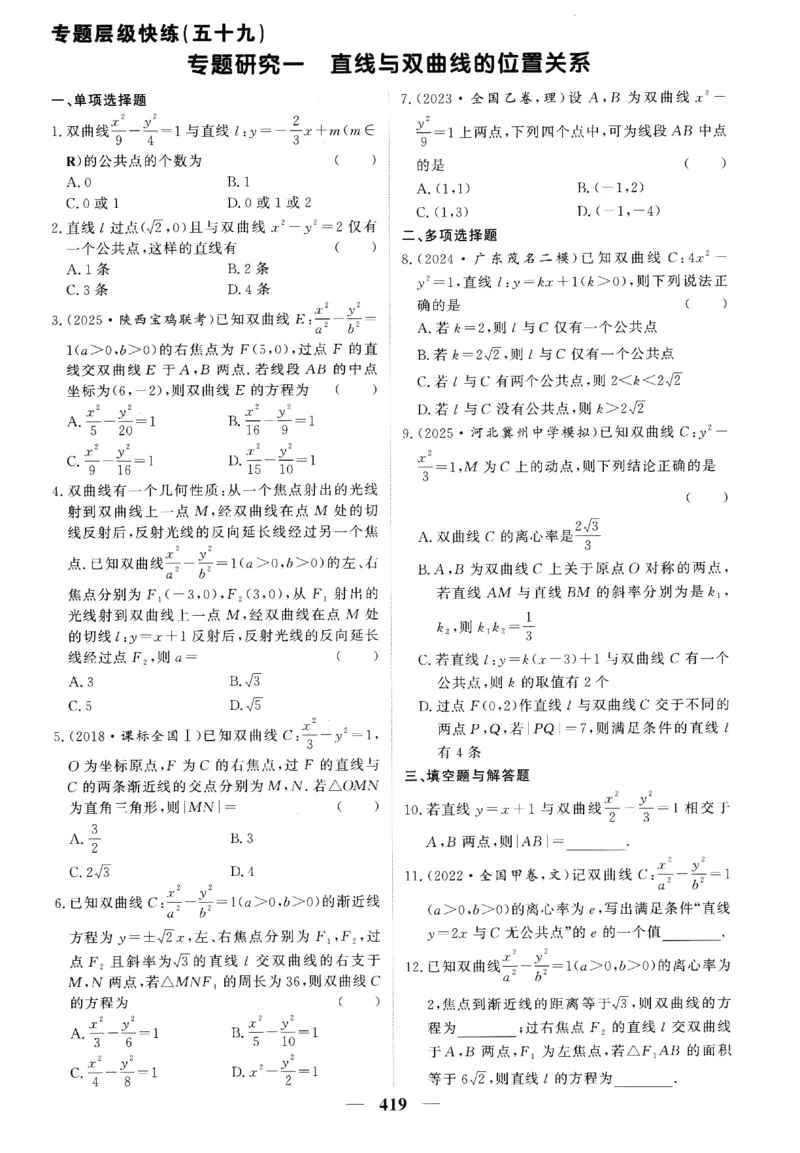 专题层级快练(五十九)
专题研究一 直线与双曲线的位置关系
一、单项选择题
1.双曲线x²/9-y²/4=1与直线l:y=-2/3x+m(m∈
R)的公共点的个数为 ( )
A.0 B.1
C.0或1 D.0或1或2
2.直线l过点(√2,0)且与双曲线x²-y²=2仅有
一个公共点,这样的直线有 ( )
A.1条 B.2条
C.3条 D.4条
3.(2025·陕西宝鸡联考)已知双曲线E:x²/a²-y²/b²=
1(a>0,b>0)的右焦点为F(5,0),过点F的直
线交双曲线E于A,B两点.若线段AB的中点
坐标为(6,-2),则双曲线E的方程为 ( )
A.x²/5-y²/20=1 B.x²/16-y²/9=1
C.x²/9-y²/16=1 D.x²/15-y²/10=1
4.双曲线有一个几何性质:从一个焦点射出的光线
射到双曲线上一点M,经双曲线在点M处的切
线反射后,反射光线的反向延长线经过另一个焦
点.已知双曲线x²/a²-y²/b²=1(a>0,b>0)的左、右
焦点分别为F₁(-3,0),F₂(3,0),从F₁射出的
光线射到双曲线上一点M,经双曲线在点M处
的切线l:y=x+1反射后,反射光线的反向延长
线经过点F₂,则a= ( )
A.3 B.√3
C.5 D.√5
5.(2018·课标全国Ⅰ)已知双曲线C:x²/3-y²=1,
O为坐标原点,F为C的右焦点,过F的直线与
C的两条渐近线的交点分别为M,N.若△OMN
为直角三角形,则|MN|= ( )
A.3/2 B.3
C.2√3 D.4
6.已知双曲线C:x²/a²-y²/b²=1(a>0,b>0)的渐近线
方程为y=±√2x,左、右焦点分别为F₁,F₂,过
点F₂且斜率为√3的直线l交双曲线的右支于
M,N两点,若△MNF₁的周长为36,则双曲线C
的方程为 ( )
A.x²/3-y²/6=1 B.x²/5-y²/10=1
C.x²/4-y²/8=1 D.x²-y²/2=1
7.(2023·全国乙卷,理)设A,B为双曲线x²-
y²/9=1上两点,下列四个点中,可为线段AB中点
的是 ( )
A.(1,1) B.(-1,2)
C.(1,3) D.(-1,-4)
二、多项选择题
8.(2024·广东茂名二模)已知双曲线C:4x²-
y²=1,直线l:y=kx+1(k>0),则下列说法正
确的是 ( )
A.若k=2,则l与C仅有一个公共点
B.若k=2√2,则l与C仅有一个公共点
C.若l与C有两个公共点,则2<k<2√2
D.若l与C没有公共点,则k>2√2
9.(2025·河北冀州中学模拟)已知双曲线C:y²-
x²/3=1,M为C上的动点,则下列结论正确的是
( )
A.双曲线C的离心率是2√3/3
B.A,B为双曲线C上关于原点O对称的两点,
若直线AM与直线BM的斜率分别为是k₁,
k₂,则k₁k₂=1/3
C.若直线l:y=k(x-3)+1与双曲线C有一个
公共点,则k的取值有2个
D.过点F(0,2)作直线l与双曲线C交于不同的
两点P,Q,若|PQ|=7,则满足条件的直线l
有4条
三、填空题与解答题
10.若直线y=x+1与双曲线x²/2-y²/3=1相交于
A,B两点,则|AB|=______.
11.(2022·全国甲卷,文)记双曲线C:x²/a²-y²/b²=1
(a>0,b>0)的离心率为e,写出满足条件“直线
y=2x与C无公共点”的e的一个值______.
12.已知双曲线x²/a²-y²/b²=1(a>0,b>0)的离心率为
2,焦点到渐近线的距离等于√3,则双曲线的方
程为______;过右焦点F₂的直线l交双曲线
于A,B两点,F₁为左焦点,若△F₁AB的面积
等于6√2,则直线l的方程为______.
— 419 —